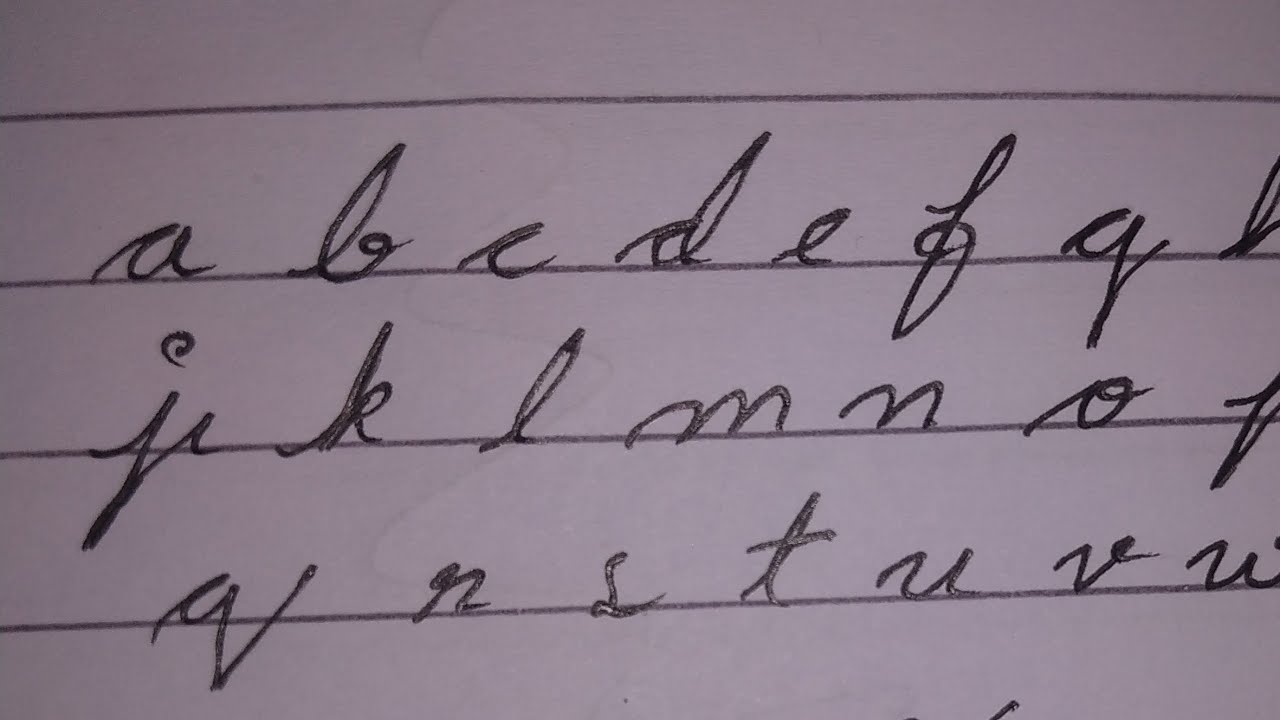 a b c d e f g h
j k l m n o p
q r s t u v w